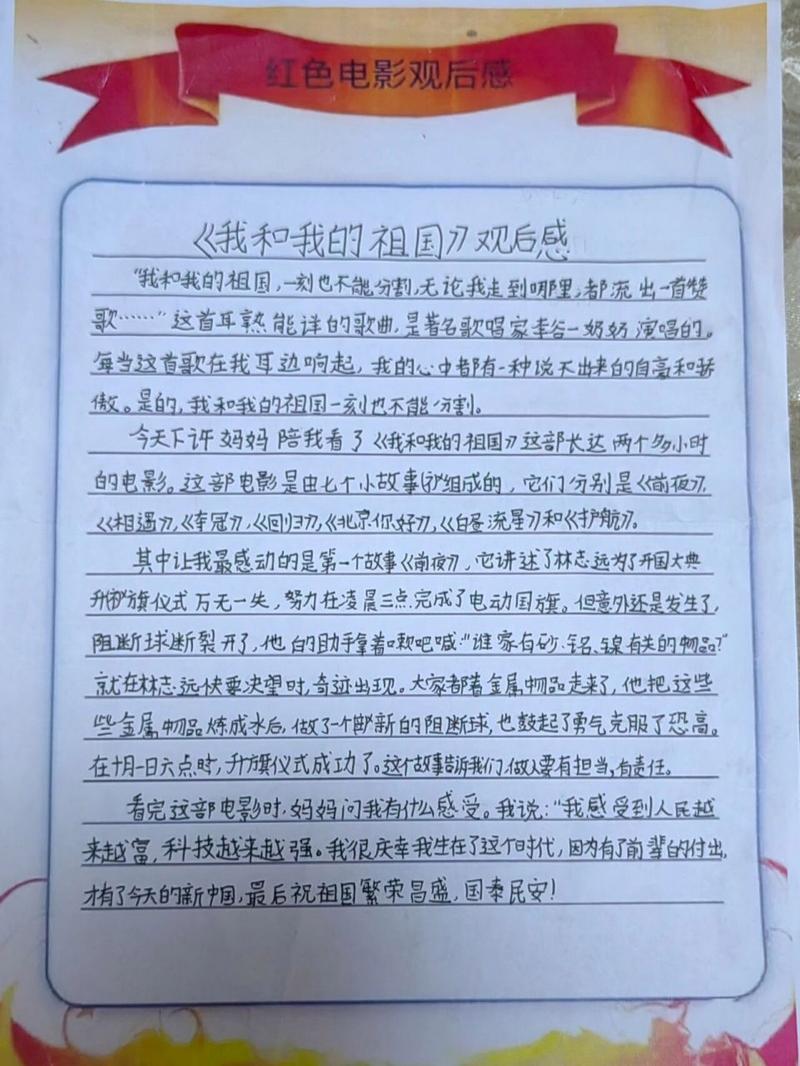 红色电影观后感
《我和我的祖国》观后感
“我和我的祖国，一刻也不能分割，无论我走到哪里，都流出一首赞
歌……”这首耳熟能详的歌曲，是著名歌唱家李谷一奶奶演唱的。
每当这首歌在我耳边响起，我的心中都有一种说不出来的自豪和骄
傲。是的，我和我的祖国一刻也不能分割。
今天下许妈妈陪我看了《我和我的祖国》这部长达两个多小时
的电影。这部电影是由七个小故事组成的，它们分别是《前夜》，
《相遇》，《夺冠》，《回归》，《北京你好》，《白昼流星》和《护航》。
其中让我最感动的是第一个故事《前夜》，它讲述了林志远为了开国大典
升旗仪式万无一失，努力在凌晨三点完成了电动国旗。但意外还是发生了，
阻断球断裂开了，他的助手拿着喇吧喊：“谁家有砂、铭、镍有关的物品？”
就在林志远快要决望时，奇迹出现。大家都着金属物品走来了，他把这些
些金属物品炼成水后，做了一个崭新的阻断球，也鼓起了勇气克服了恐高。
在十月一日六点时，升旗仪式成功了。这个故事告诉我们，做人要有担当，有责任。
看完这部电影时，妈妈问我有什么感受。我说：“我感受到人民越
来越富，科技越来越强。我很庆幸我生在了这个时代，因为有了前辈的付出，
才有了今天的新中国，最后祝祖国繁荣昌盛，国泰民安！